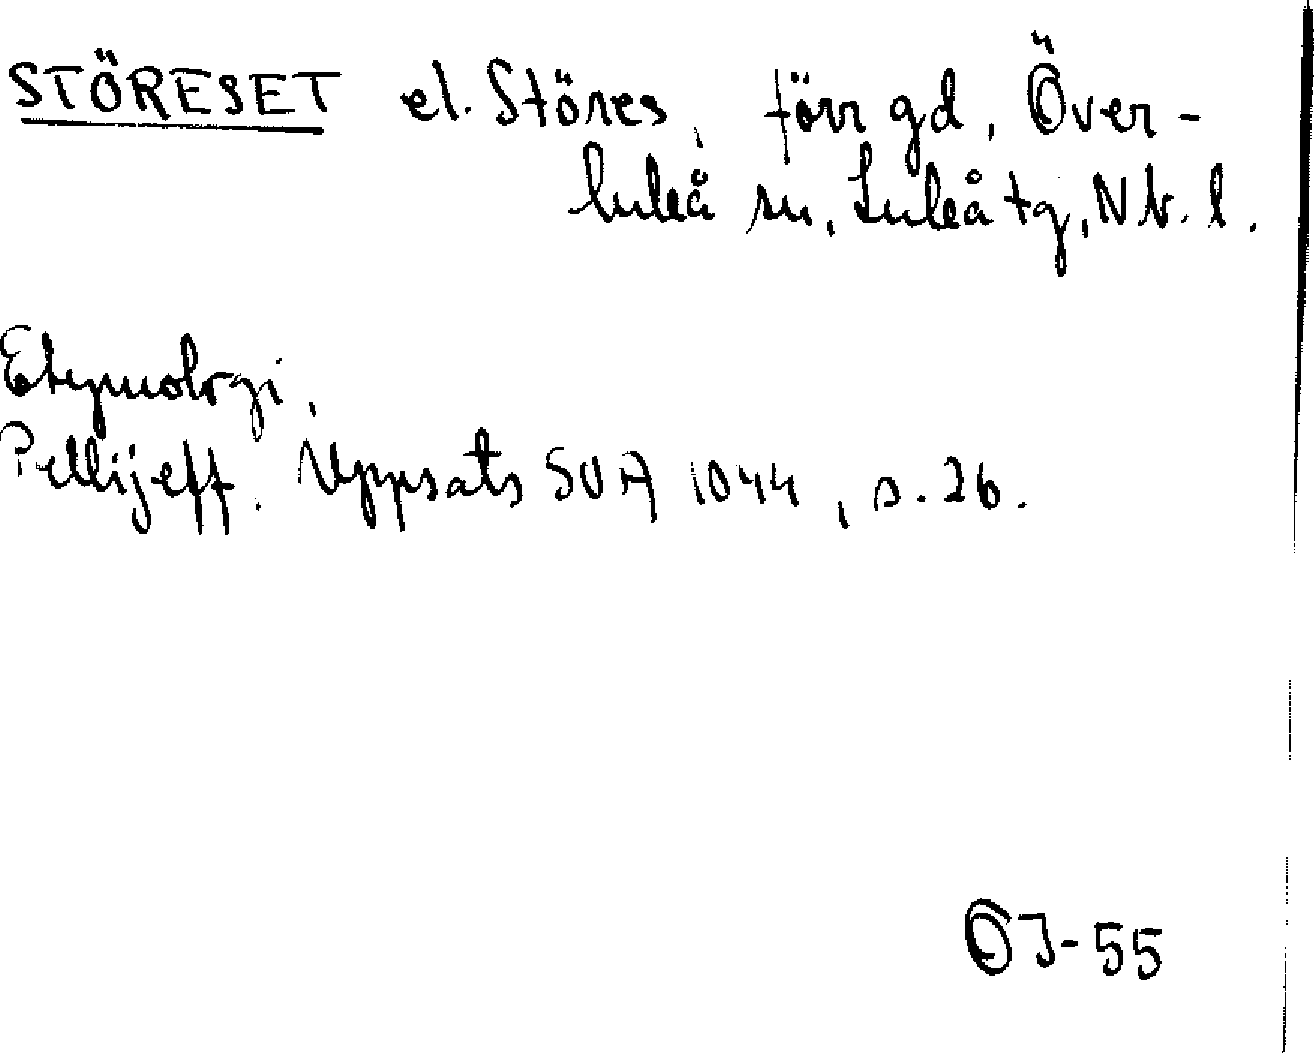 STÖRESET el. Störes, förr gd, Över-
luleå sn, Luleå tg, Nb. l.
Etymologi.
Pellijeff. Uppsats SOA 1044, s. 26.
OJ-55